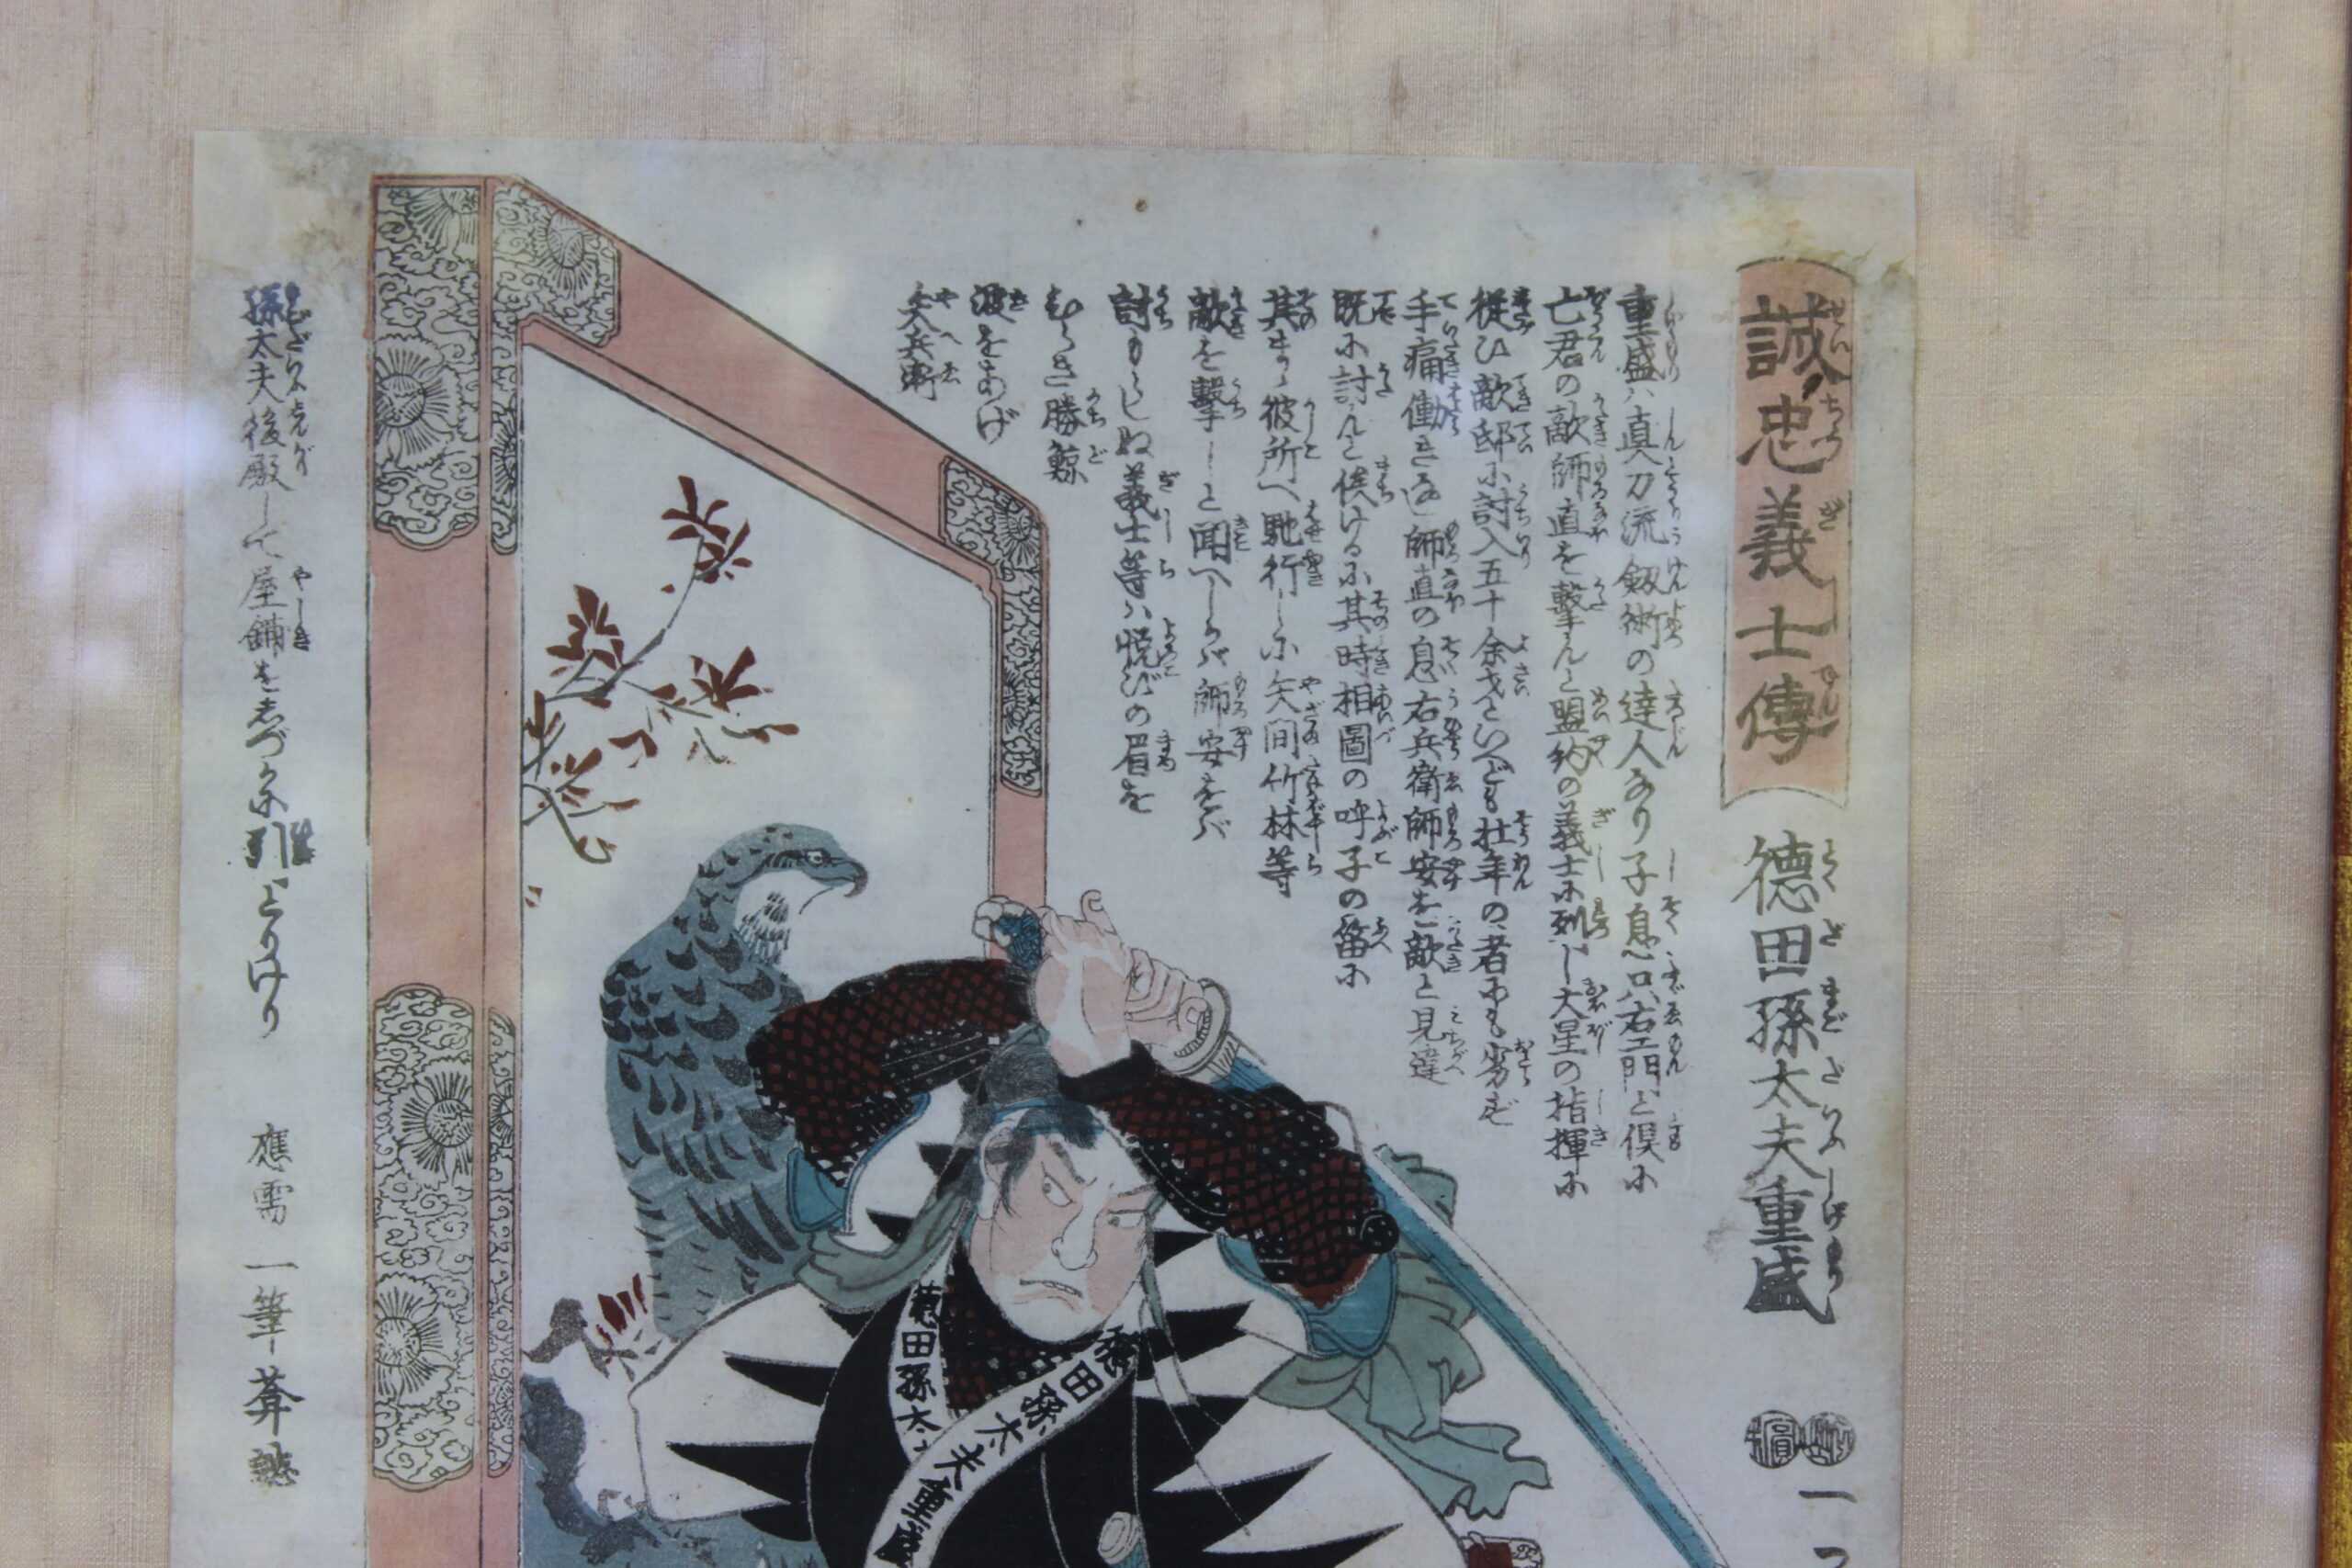 誠忠義士傳
徳田孫太夫重盛
重盛ハ真刀流劔術の達人なり子息只右エ門と倶に
亡君の敵師直を撃んと盟約の義士に列し大星の指揮に
従ひ敵邸に討入五十余才といへども壮年の者にも劣ず
手痛働き 師直の息右兵衛師安を敵と見違
既に討んと俟ける小其時相圖の呼子の笛に
其まゝ彼所へ馳行しに矢間竹林等
敵を撃しと聞へしかバ師安をバ
討もらしぬ義士等ハ悦びの眉を
ひらき勝鯨
波をあげ
矢兵衛
孫太夫後殿して屋鋪をしづかに引とりけり
應需 一筆菴誌
徳田孫太
徳田孫太夫重盛
一